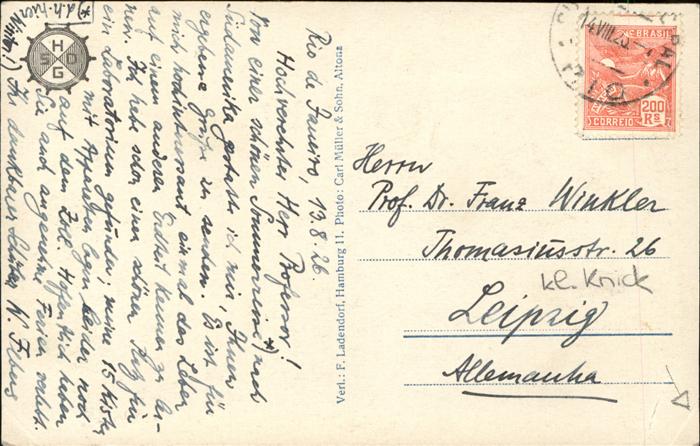 Rio de Janeiro, 13.8.26
Hochverehrter Herr Professor!
Von einer schönen Sommerreise *) nach
Südamerika gestatte ich mir, Ihnen
ergebene Grüße zu senden. Es ist für
mich hochinteressant einmal das Leben
auf einem anderen Erdteil kennen zu ler-
nen. Ich habe schon einen schönen Platz für
ein Laboratorium gefunden; meine 15 Kisten
mit Apparaten liegen leider noch
auf dem Zoll. Hoffentlich haben
Sie auch angenehme Ferien verlebt.
Ihr dankbarer Schüler
*) d.h. hier Winter!
HSDG
Verl.: F. Ladendorf, Hamburg 11. Photo: Carl Müller & Sohn, Altona
14 VIII
BRASIL
200 Rs
CORREIO
Herrn
Prof. Dr. Franz Winkler
Thomasiusstr. 26
kl. Knick
Leipzig
Allemanha